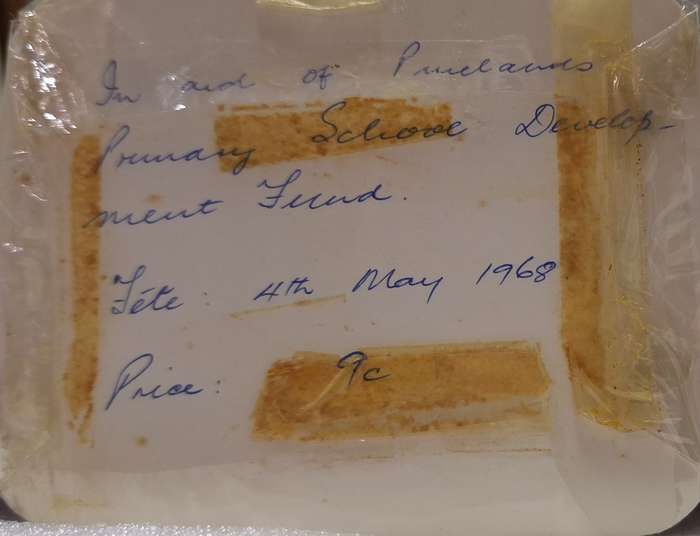 In aid of Pinelands
Primary School Develop-
ment Fund.
Fête: 4th May 1968
Price: 9c